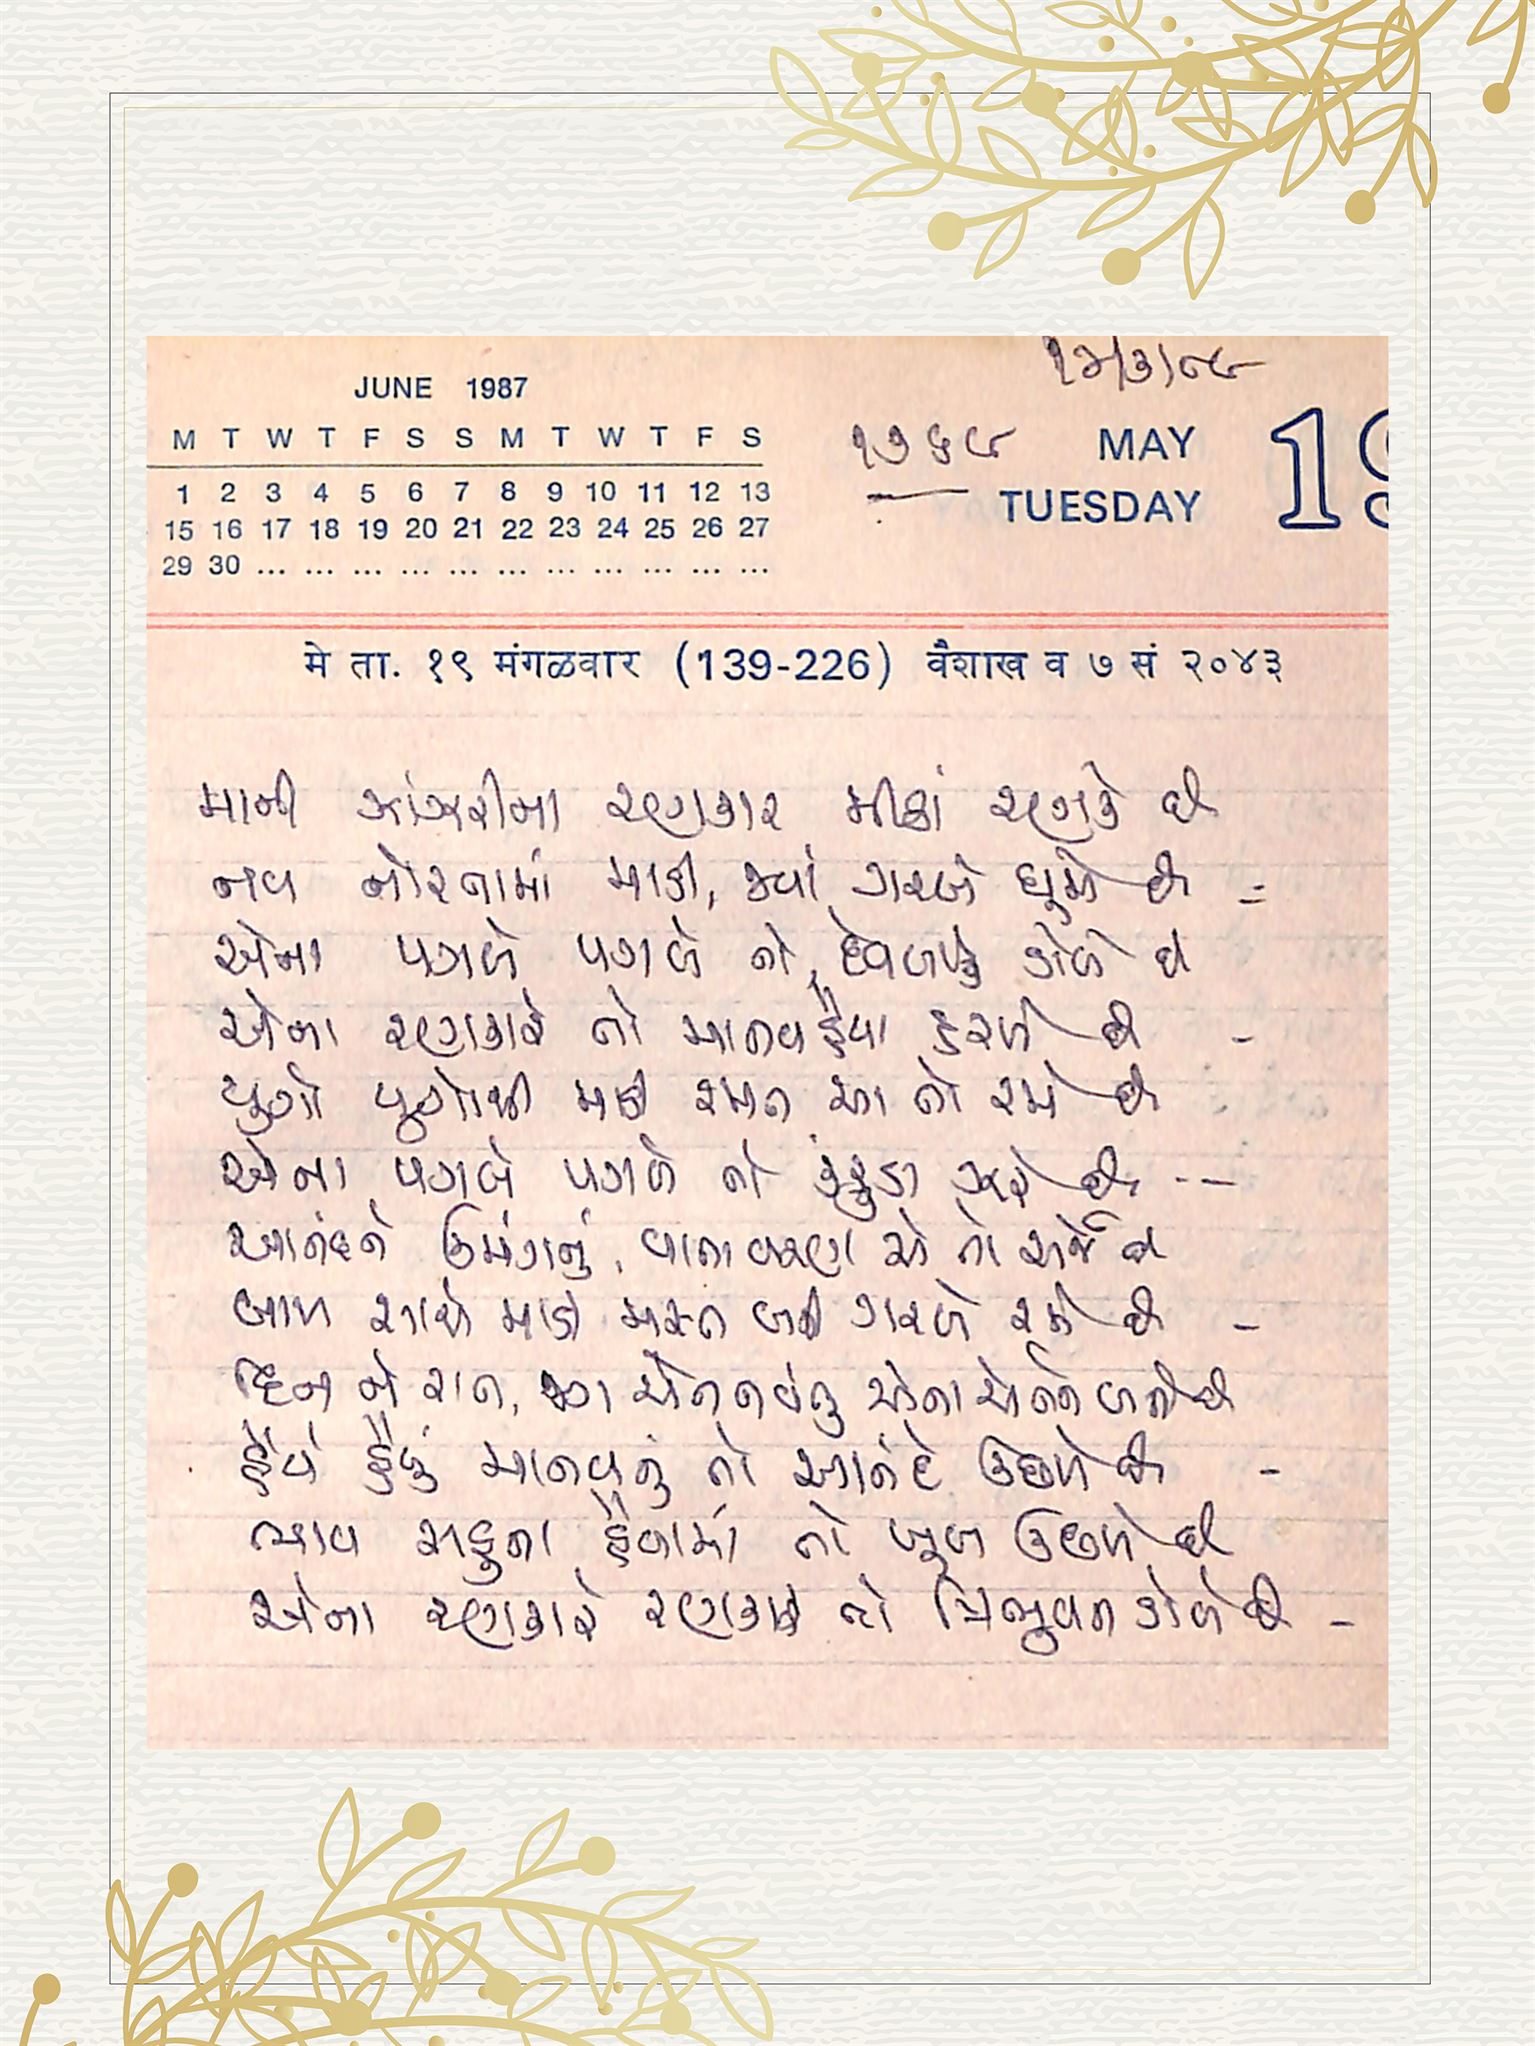 JUNE 1987
M T W T F S S M T W T F S
1 2 3 4 5 6 7 8 9 10 11 12 13
15 16 17 18 19 20 21 22 23 24 25 26 27
29 30 ... ... ... ... ... ... ... ... ... ... ...
૧૭૬૮
MAY
TUESDAY
19
मे ता. १९ मंगळवार (139-226) वैशाख व ७ सं २०४३
માની ઝાંઝરીના રણકાર મીઠાં રણકે છે
નવ નોરતામાં માડી, જ્યાં ગરબે ઘૂમે છે =
એના પગલે પગલે તો, દેવળ ડોલે છે
એના રણકારે તો માનવહૈયા હરખે છે -
યુગો યુગોથી માડી રમત આ તો રમે છે
એના પગલે પગલે તો કુંકુડા ઝરે છે ---
આનંદને ઉમંગનું, વાતાવરણ એ તો સર્જે છે
બાળ સાથે માડી મસ્ત બની ગરબે રમે છે -
દિન ને રાત, ના એને નડતું એના એ તેજે બને છે
હૈયે હૈયું માનવનું તો આનંદે ઉછળે છે -
ભાવ સહુના હૈયામાં તો ખૂબ ઉછળે છે
એના રણકારે રણકારે તો ત્રિભુવન ડોલે છે -